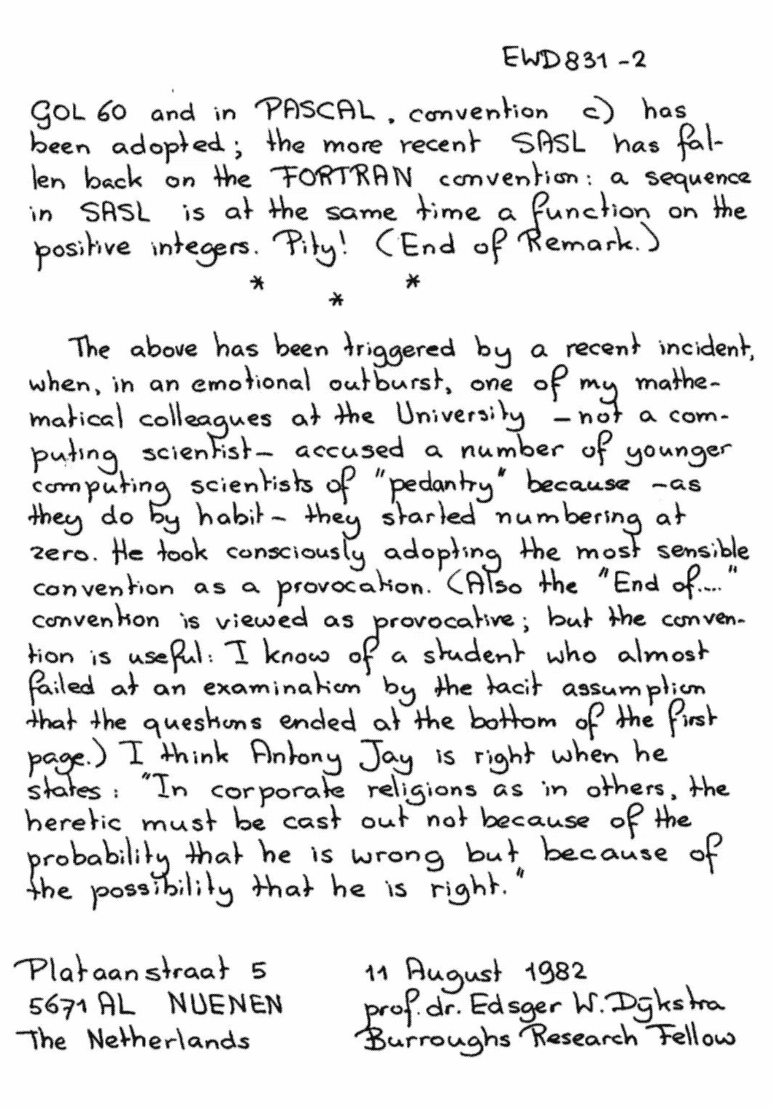 EWD831-2
GOL 60 and in PASCAL, convention c) has
been adopted; the more recent SASL has fal-
len back on the FORTRAN convention: a sequence
in SASL is at the same time a function on the
positive integers. Pity! (End of Remark.)
* * *
The above has been triggered by a recent incident,
when, in an emotional outburst, one of my mathe-
matical colleagues at the University —not a com-
puting scientist— accused a number of younger
computing scientists of "pedantry" because —as
they do by habit— they started numbering at
zero. He took consciously adopting the most sensible
convention as a provocation. (Also the "End of...."
convention is viewed as provocative; but the conven-
tion is useful: I know of a student who almost
failed at an examination by the tacit assumption
that the questions ended at the bottom of the first
page.) I think Antony Jay is right when he
states: "In corporate religions as in others, the
heretic must be cast out not because of the
probability that he is wrong but because of
the possibility that he is right."
Plataanstraat 5
5671 AL NUENEN
The Netherlands
11 August 1982
prof.dr. Edsger W. Dijkstra
Burroughs Research Fellow